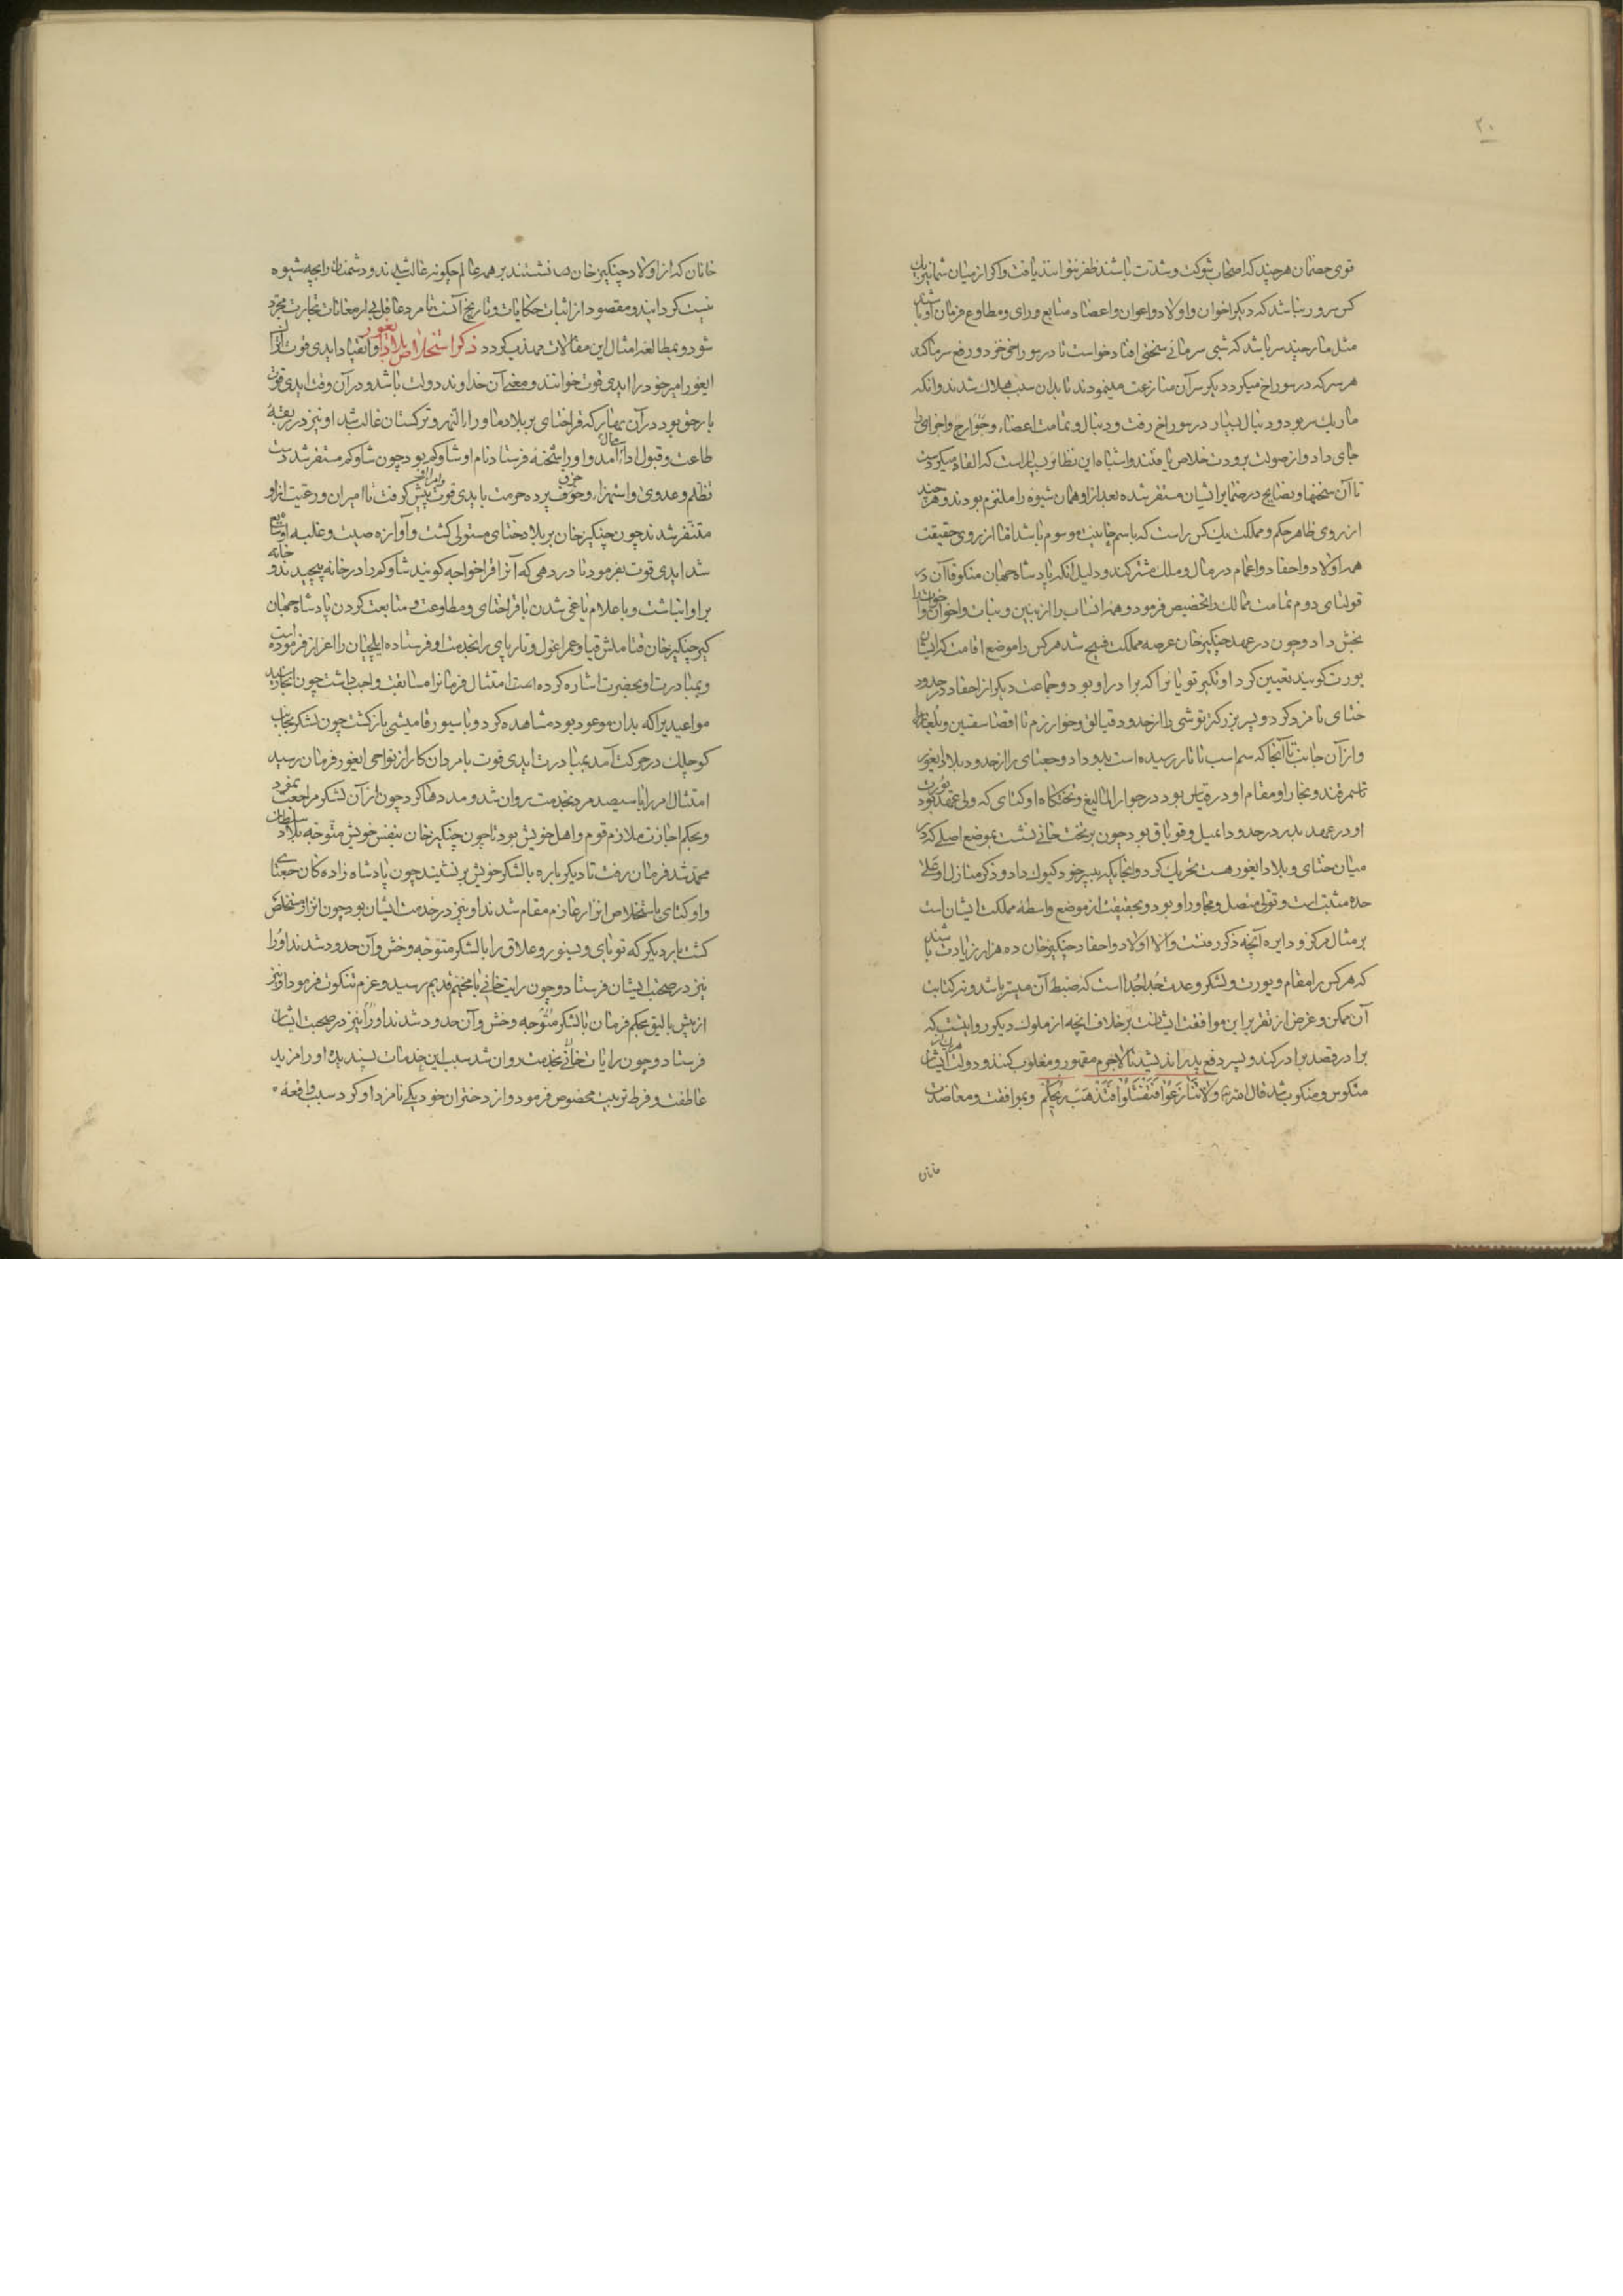 ۲۰
قوی خصمان هر چند که اصحاب شوکت و شدت باشند ظفر نتوانند یافت و اکر از میان شما یک
کس سرور نباشد که دیکر اخوان و اولاد و اعوان و اعضاد متابع و رای و مطاوع فرمان او باشند
مثل مار چند سر باشد که شبی سرمائی سخت افتاد خواست تا در سوراخ خزد و دفع سرما کند
هر سر که در سوراخ میکرد دیکر سر آن منازعت مینمودند تا بدان سبب هلاک شدند و آنکه
مار یک سر بود و دنبال بسیار در سوراخ رفت و دنبال و تمامت اعضاء و جوارح و اجزای را
جای داد و از صولت برودت خلاص یافتند و اشباه این نظایر بسیارست که القاء میکردست
تا آن سخنها و نصایح در ضمایر ایشان مستقر شده بعد از او همان شیوه را ملتزم بودند و هر چند
از روی ظاهر حکم و مملکت یک کس راست که باسم خانیت موسوم باشد اما از روی حقیقت
همه اولاد و احفاد و اعمام در مال و ملک مشترکند و دلیل آنکه پادشاه جهان منکو قاآن در
قولتای دوم تمامت ممالک را تخصیص فرمود و همه انساب را از بنین و بنات و اخوان و اخوات را
بخش داد و چون در عهد چنکیز خان عرصه مملکت فسیح شد هر کس را موضع اقامت که ایشان
یورت کویند تعیین کرد اوتکین نویان را که برادر او بود و جماعت دیکر از احفاد در حدود
ختای نامزد کرد و پسر بزرکتر توشی را از حدود قیالق و خوارزم تا اقصا سقسین و بلغار
و از آن جانب تا آنجا که سم اسب تاتار رسیده است بدو داد و جغتای را از حدود بلاد ایغور
تا سمرقند و بخارا و مقام او در قناس بود در جوار المالیغ و تختکاه اوکتای که ولی عهد بود یورت
او در عهد پدر در حدود ایمیل و قوباق بود چون بر تخت خانی نشست بموضع اصلی که در
میان ختای و بلاد ایغور هست تحریک کرد و آن جایکه به پسر خود کیوک داد و ذکر منازل او علی
حده مثبت است و تولی متصل و مجاور او بود و بحقیقت از موضع واسطه مملکت ایشان است
بر مثال مرکز و دایره آنچه ذکر رفتست و الا اولاد و احفاد چنکیز خان ده هزار زیادت باشند
که هر کس را مقام و یورت و لشکر و عدت جدا جدا است که ضبط آن میسر باشد و نه کتابت
آن ممکن و غرض از تقریر این موافقت ایشانست بر خلاف آنچه از ملوک دیکر روایتست که
برادر قصد برادر کند و پسر دفع پدر اندیشد تا لاجرم مقهور و مغلوب کنند و دولت ایشان
منکوس و منکوب شد قال الله تع ولا تنازعوا فتفشلوا فتذهب ریحکم و بموافقت و معاضدت
خانان
خانان که از اولاد چنکیز خان نشستند بر همه عالم چکونه غالب شدند و دشمنان را بچه شیوه
نیست کردانیدند و مقصود از اثبات حکایات و تاریخ آنست تا مرد عاقل بی از معانات تجارت مجرد
شود و بمطالعه امثال این مقالات مهذب کردد ذکر استخلاص بلاد ایغور و انقیاد ایدی قوت اتراک
ایغور امیر خود را ایدی قوت خوانند و معنی آن خداوند دولت باشد و در آن وقت ایدی قوت
بارجوق بود در آن بهار که قراختای بر بلاد ماوراء النهر و ترکستان غالب شد او نیز در ربقه
طاعت و قبول ادای مال آمد و او را شحنه فرستاد نام او شاوکم بود چون شاوکم مستقر شد دست
تظلم و عدوی و استهزاء و خوف پرده حرمت با ایدی قوت پیش کرفت تا امیران و رعیت از او
متنفر شدند چون چنکیز خان بر بلاد ختای مستولی کشت و آوازه صیت و غلبه او شایع
شد ایدی قوت بفرمود تا در دهی که آنرا قراخواجه کویند شاوکم را در خانه پیچیدند و خانه
بر او انباشت و باعلام یاغی شدن با قراختای و مطاوعت و متابعت کردن پادشاه جهان
کیر چنکیز خان قتاملش قیا و عمر اغول و تاربای را بخدمت او فرستاده ایلچیان را اعزاز فرموده است
و بمبادرت او بحضرت اشاره کرده است امتثال فرمانرا مسابقت واجب داشت چون آنجا رسید
مواعید یرا که بدان موعود بود مشاهده کرد و با سیورقامیشی بازکشت چون لشکر بجانب
کوچلک در حرکت آمد بمبادرت ایدی قوت با مردان کار از نواحی ایغور فرمان رسید
امتثال امر را با سیصد مرد بخدمت روان شد و مددها کرد چون از آن لشکر مراجعت نمود
و بحکم اجازت ملازم قوم و اهل خویش بود تا چون چنکیز خان بنفس خویش متوجه بلاد سلطان
محمد شد فرمان رفت تا دیکر باره با لشکر خویش بر نشیند چون پادشاه زاده کان جغتای
و اوکتای باستخلاص اترار عازم مقام شدند او نیز در خدمت ایشان بود چون اترار مستخلص
کشت بار دیکر که توبای و یسنور و علاق را با لشکر متوجه وخش و آن حدود شدند او را
نیز در صحبت ایشان فرستاد و چون رایت خانی با مخیم قدیم رسید و عزم تنکوت فرمود او نیز
از بیش بالیق بحکم فرمان با لشکر متوجه وخش و آن حدود شدند او را نیز در صحبت ایشان
فرستاد و چون رایات خانی بخدمت روان شد سبب این خدمات پسندیده او را مزید
عاطفت و فرط تربیت مخصوص فرمود و از دختران خود یکی نامزد او کرد سبب واقعه